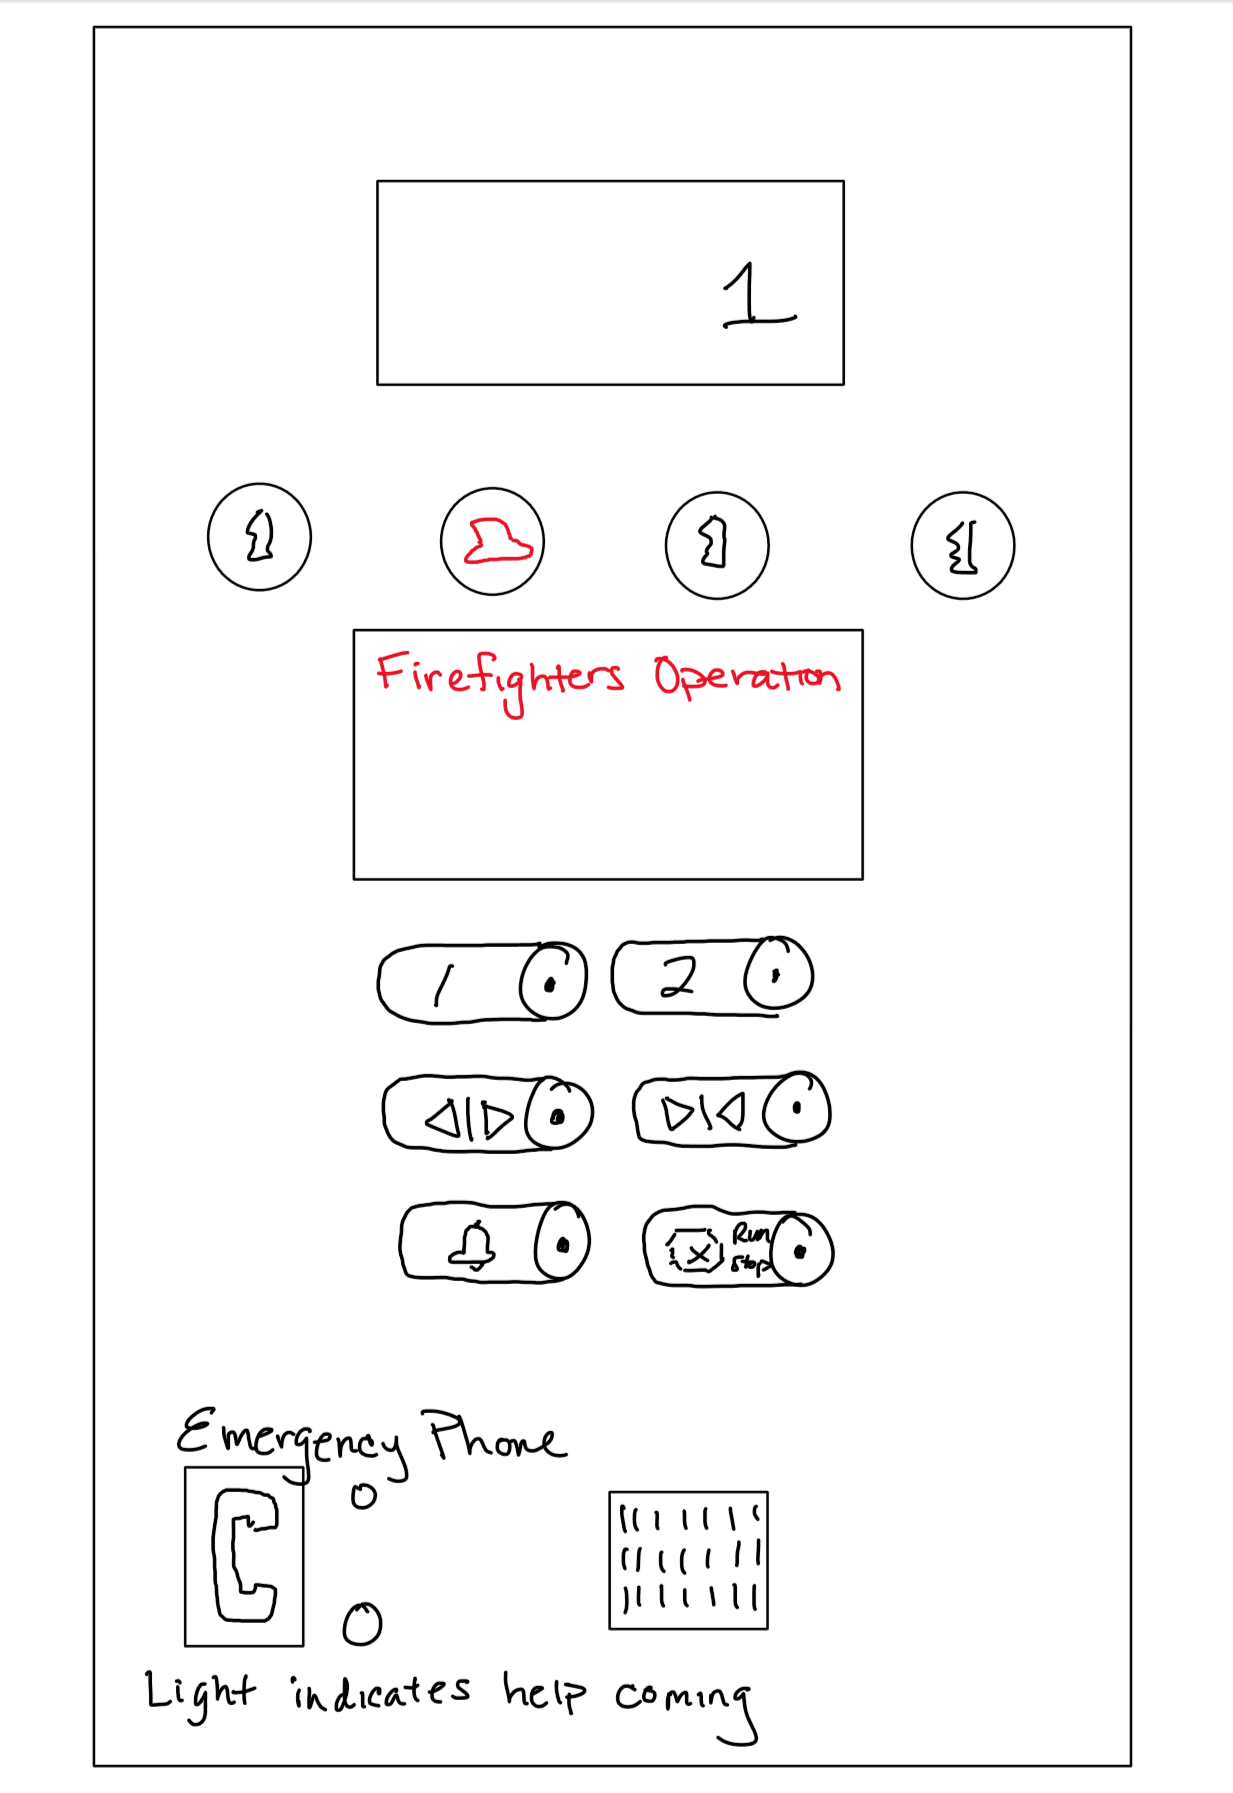 1
Firefighters Operation
1 2
Run
Stop
Emergency Phone
Light indicates help coming